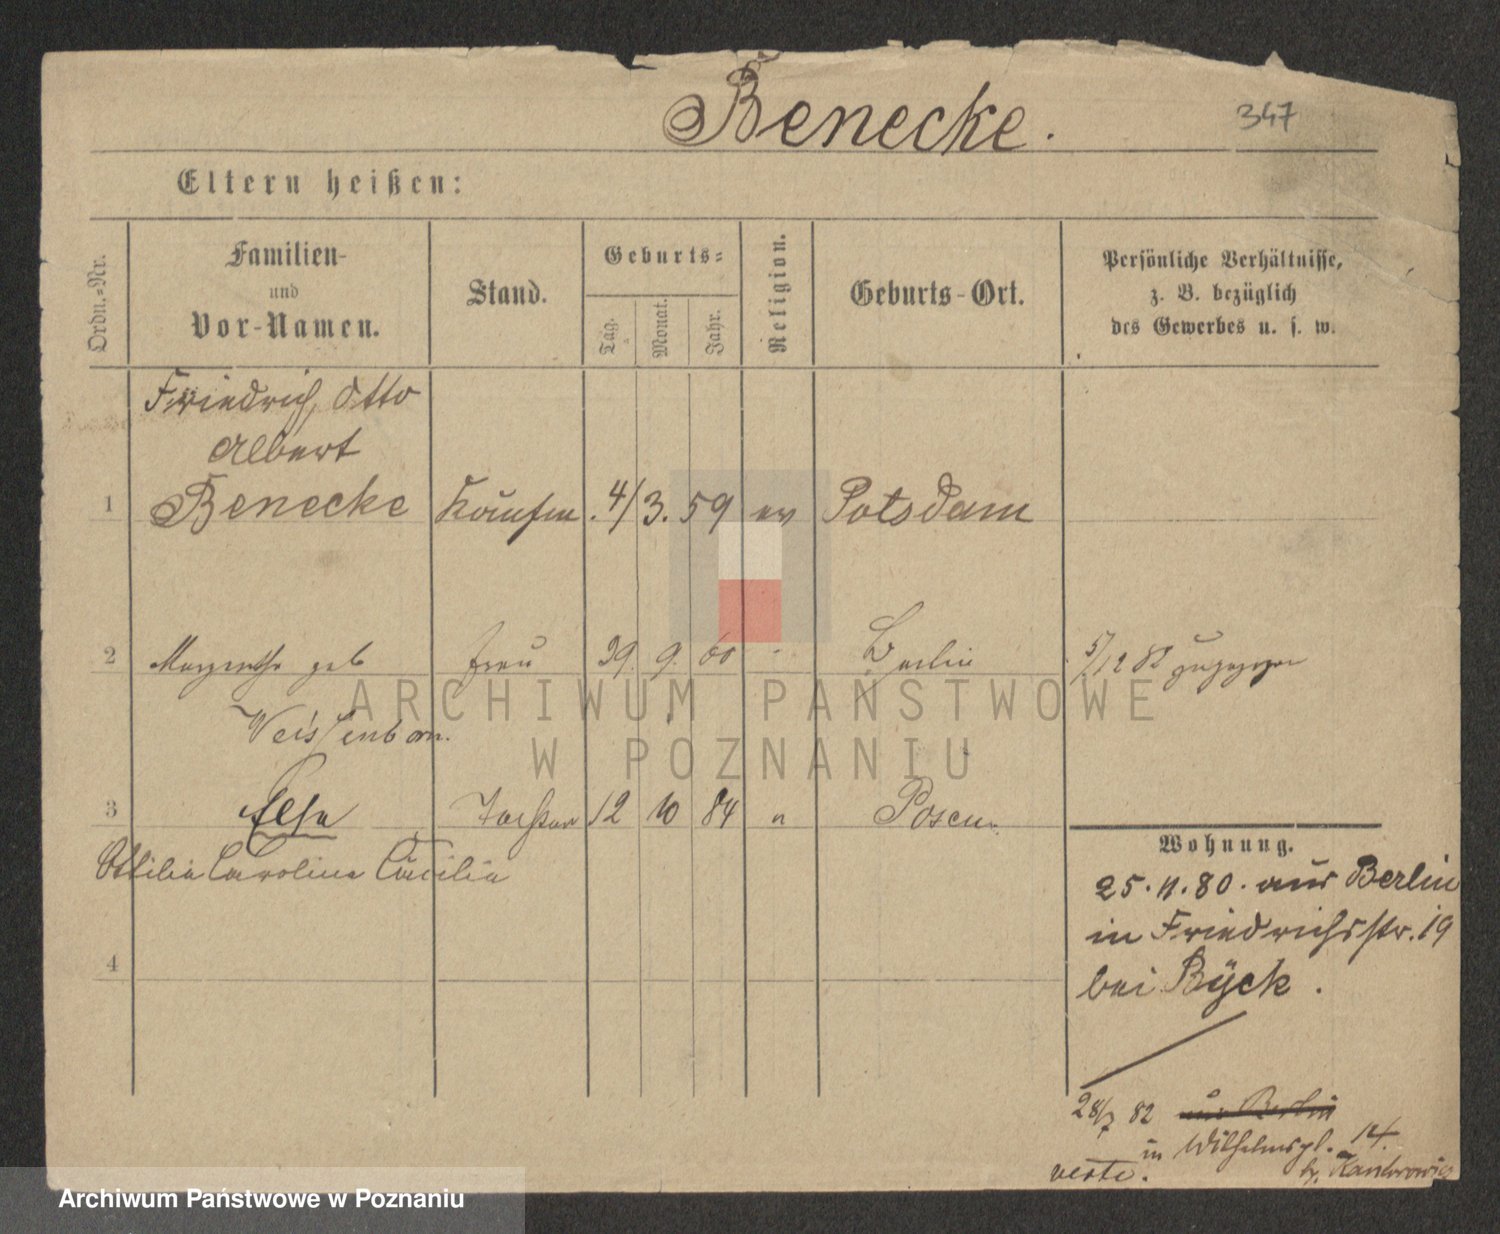 Benecke.
347
Eltern heißen:
Ordn.=Nr.
Familien-
und
Vor-Namen.
Stand.
Geburts=
Tag.
Monat.
Jahr.
Religion.
Geburts-Ort.
Persönliche Verhältnisse,
z. B. bezüglich
des Gewerbes u. s. w.
Friedrich, Otto
Albert
1 Benecke Kaufm. 4/3. 59 ev Potsdam
2 Margarethe geb Frau 29. 9. 60 " Berlin 5/12 82 zugezogen
Weissenborn.
3 Else Tochter 12 10 84 " Posen
Ottilie Caroline Cäcilie
4
Wohnung.
25. 11. 80. aus Berlin
in Friedrichsstr. 19
bei Bÿck.
28/7 82 aus Berlin
in Wilhelmspl. 14
verte. b. Kantorowicz
ARCHIWUM PAŃSTWOWE
W POZNANIU
Archiwum Państwowe w Poznaniu